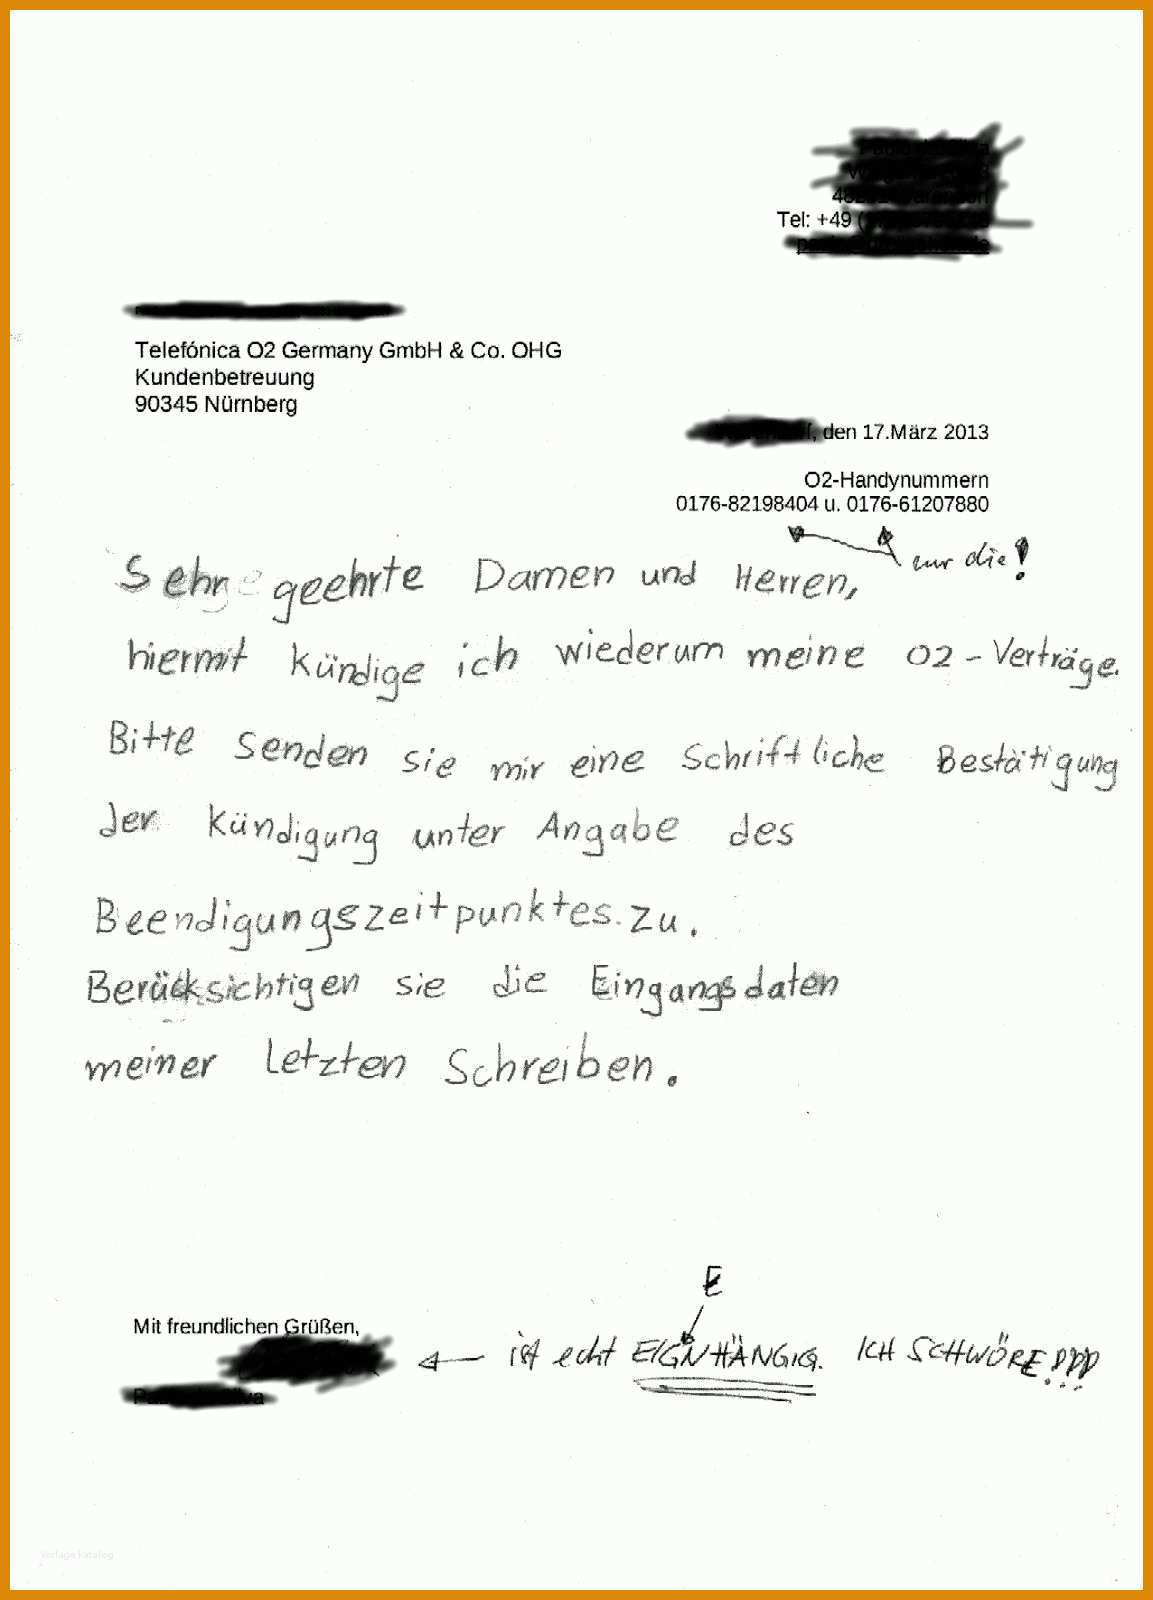 Tel: +49 (
Telefónica O2 Germany GmbH & Co. OHG
Kundenbetreuung
90345 Nürnberg
, den 17.März 2013
O2-Handynummern
0176-82198404 u. 0176-61207880
nur die!
Sehr geehrte Damen und Herren,
hiermit kündige ich wiederum meine O2-Verträge.
Bitte senden sie mir eine Schriftliche Bestätigung
der Kündigung unter Angabe des
Beendigungszeitpunktes zu.
Berücksichtigen sie die Eingangsdaten
meiner letzten Schreiben.
E
Mit freundlichen Grüßen,
ist echt EIGNHÄNGIG. ICH SCHWÖRE!!!
Vorlage katalog